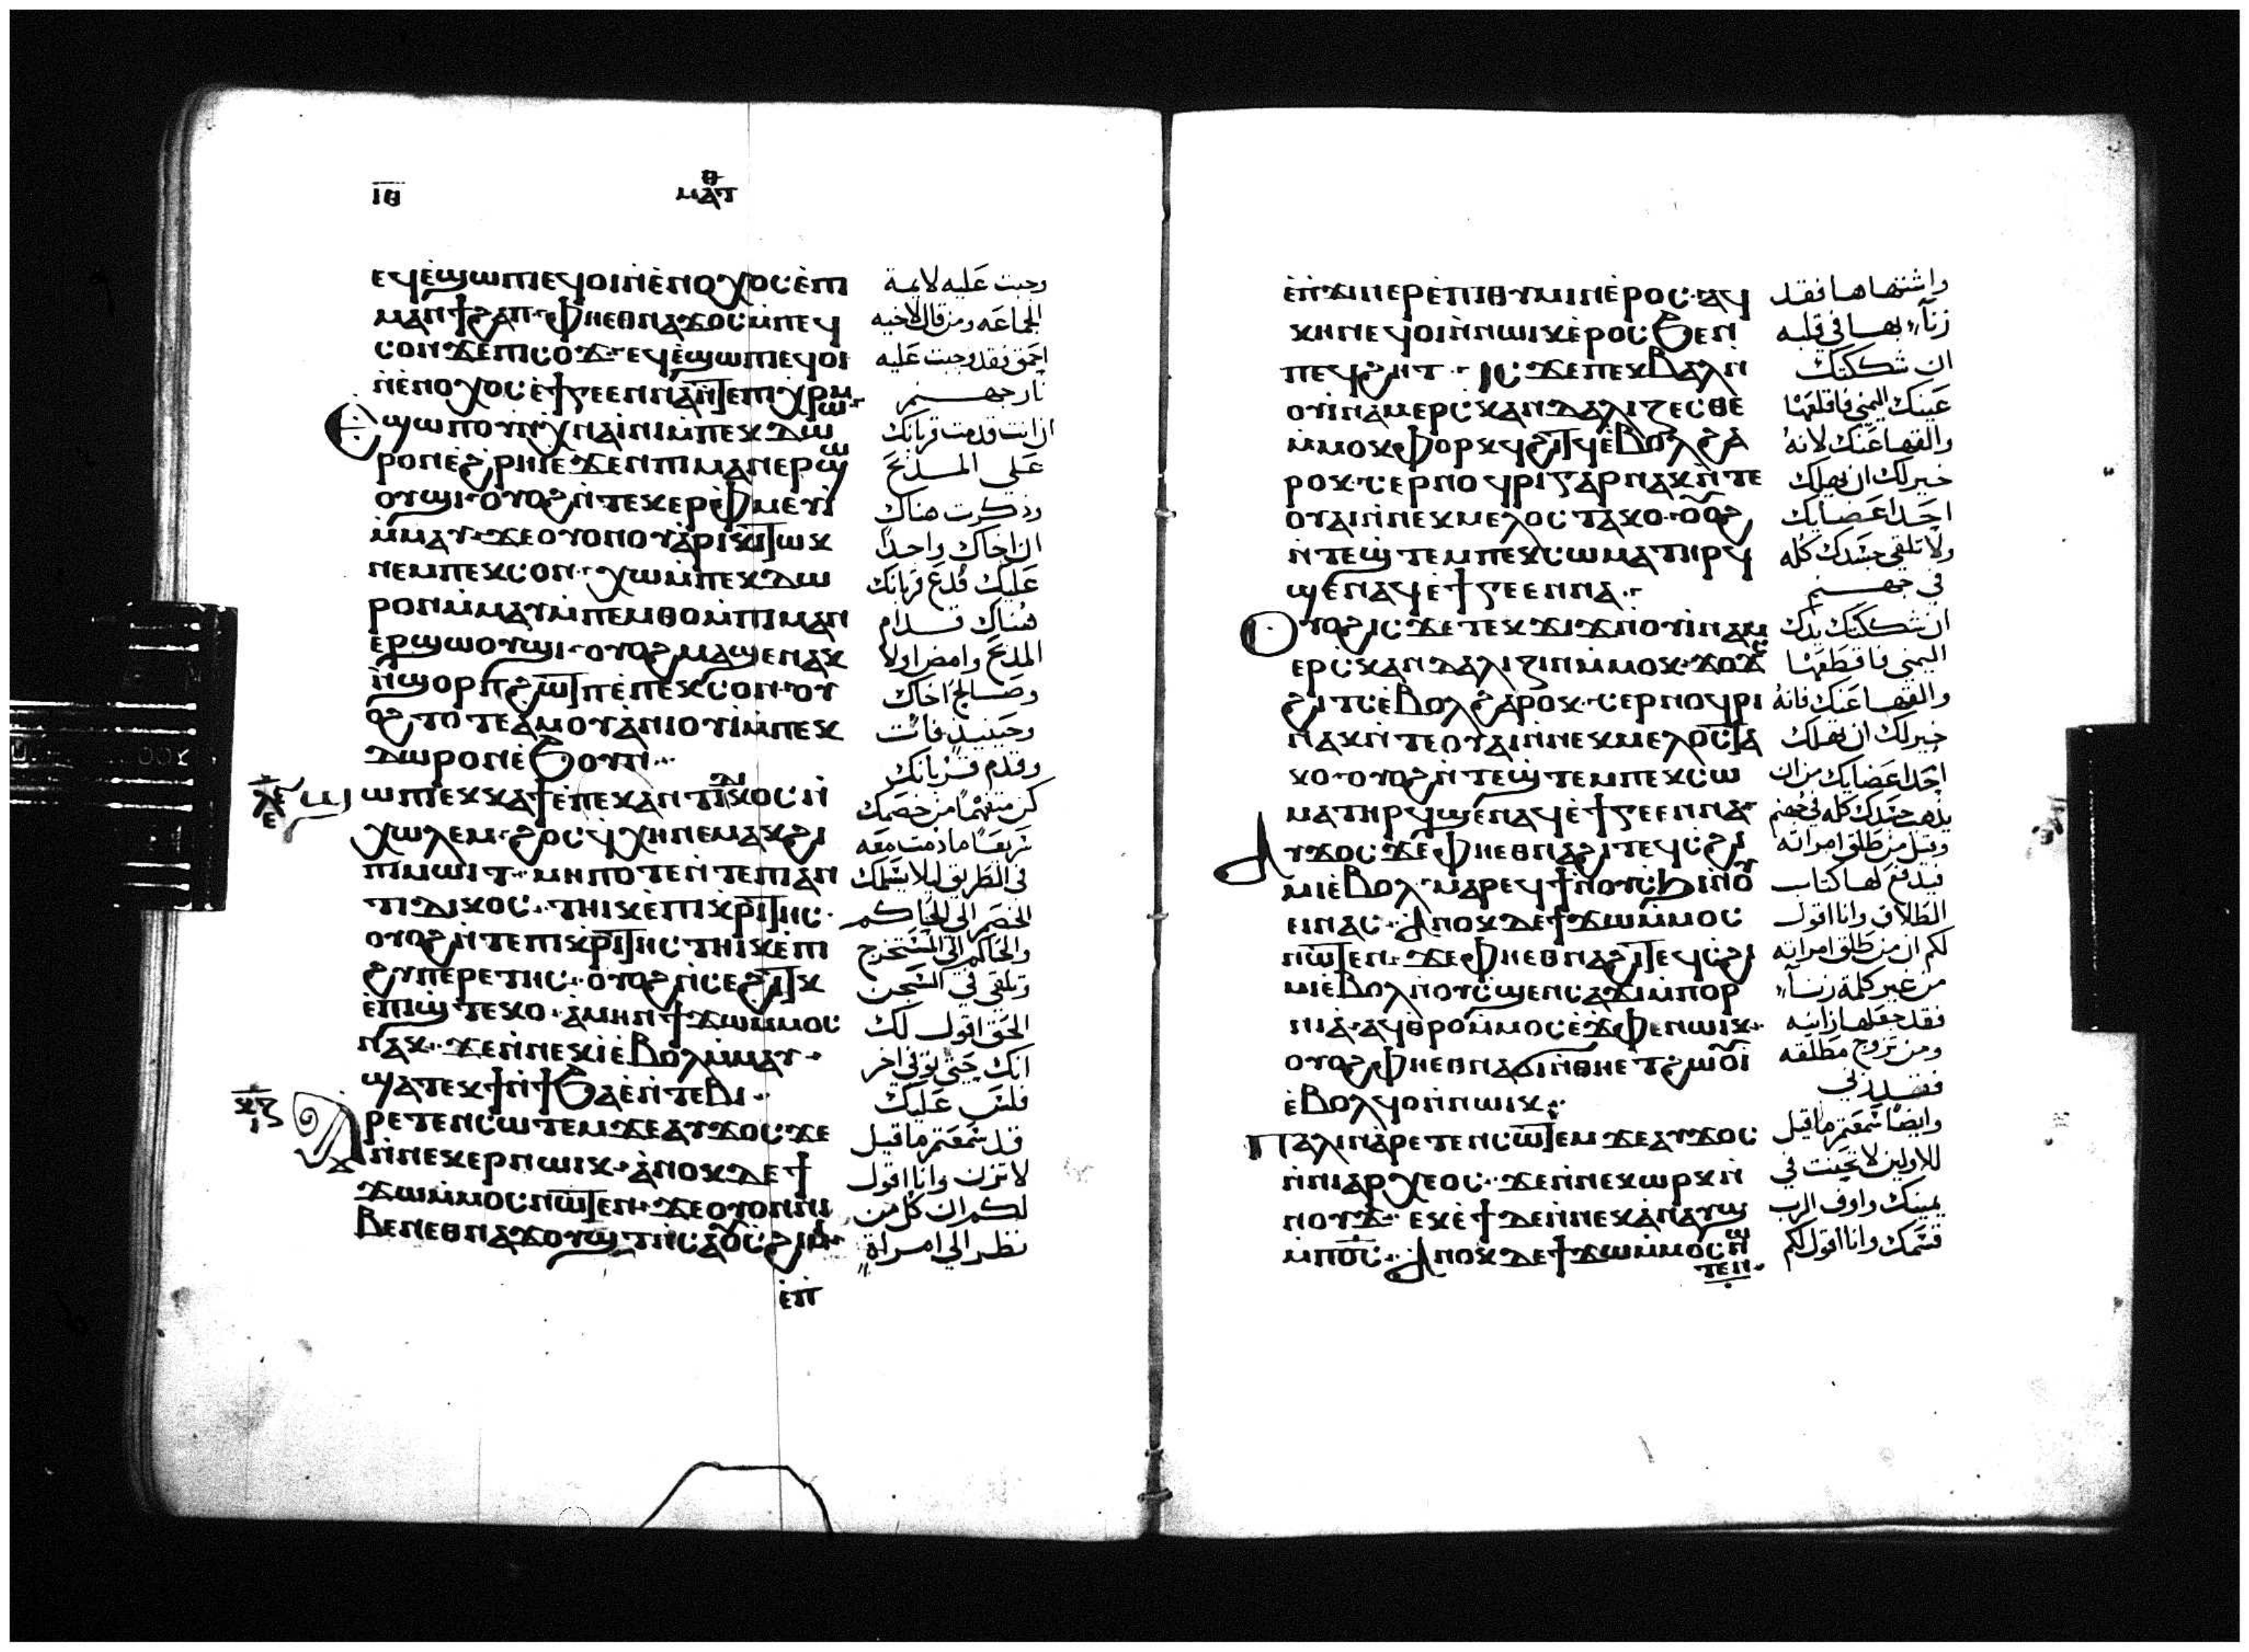 ⲓⲑ
ⲙⲁⲧ
ⲉϥⲉ̀ϣⲱⲡⲓⲉϥⲟⲓⲛ̀ⲉ̀ⲛⲟⲭⲟⲥⲉ̀ⲡⲓ
ⲙⲁⲛϯϩⲁⲡ ⲫⲏⲉⲑⲛⲁϫⲟⲥⲙ̀ⲡⲉϥ
ⲥⲟⲛϫⲉⲡⲓⲥⲟϫ ⲉϥⲉ̀ϣⲱⲡⲓⲉϥⲟⲓ
ⲛ̀ⲉ̀ⲛⲟⲭⲟⲥⲉ̀ϯⲅⲉⲉⲛⲛⲁⲛ̀ⲧⲉⲡⲓⲭⲣⲱⲙ
ⲉϣⲱⲡⲟⲩⲛⲭⲛⲁⲓ̀ⲛⲓⲙ̀ⲡⲉⲕⲇⲱ
ⲣⲟⲛⲉ̀ϩⲣⲏⲓⲉϫⲉⲛⲡⲓⲙⲁⲛⲉⲣϣⲱ
ⲟⲩϣⲓ ⲟⲩⲟϩⲛ̀ⲧⲉⲕⲉⲣⲫ̀ⲙⲉⲩⲓ̀
ⲙ̀ⲙⲁⲩ ϫⲉⲟⲩⲟⲛⲟⲩⲁ̀ⲣⲓⲕⲓⲛ̀ⲧⲱⲕ
ⲛⲉⲙⲡⲉⲕⲥⲟⲛ ⲭⲱⲙ̀ⲡⲉⲕⲇⲱ
ⲣⲟⲛⲙ̀ⲙⲁⲩⲙ̀ⲡⲉⲙⲑⲟⲙ̀ⲡⲓⲙⲁⲛ
ⲉ̀ⲣϣⲱⲟⲩϣⲓ ⲟⲩⲟϩⲙⲁϣⲉⲛⲁⲕ
ⲛ̀ϣⲟⲣⲡϩⲱⲧⲡⲉ̀ⲡⲉⲕⲥⲟⲛ ⲟⲩ
ⲟϩⲧⲟⲧⲉⲁ̀ⲙⲟⲩⲁ̀ⲛⲓⲟⲩⲓ̀ⲙ̀ⲡⲉⲕ
ⲇⲱⲣⲟⲛⲉ̀ϧⲟⲩⲛ
ϣⲱⲡⲓⲉⲕⲕⲁϯⲉ̀ⲡⲉⲕⲁⲛⲧⲓⲇⲓⲕⲟⲥⲛ̀
ⲭⲱⲗⲉⲙ ϩⲟⲥⲕ̀ⲭⲏⲛⲉⲙⲁϥϩⲓ
ⲡⲓⲙⲱⲓⲧ ⲙⲏⲡⲟⲧⲉⲛ̀ⲧⲉⲡⲓⲁⲛ
ⲧⲓⲇⲓⲕⲟⲥ ⲧⲏⲓⲕⲉ̀ⲡⲓⲕⲣⲓⲧⲏⲥ
ⲟⲩⲟϩⲛ̀ⲧⲉⲡⲓⲕⲣⲓⲧⲏⲥⲧⲏⲓⲕⲉ̀ⲡⲓ
ϩⲩⲡⲉⲣⲉⲧⲏⲥ ⲟⲩⲟϩⲛ̀ⲥⲉϩⲓⲧⲕ
ⲉ̀ⲡⲓϣⲧⲉⲕⲟ ⲁ̀ⲙⲏⲛϯϫⲱⲙ̀ⲙⲟⲥ
ⲛⲁⲕ ϫⲉⲛ̀ⲛⲉⲕⲓ̀ⲉ̀ⲃⲟⲗⲙ̀ⲙⲁⲩ
ϣⲁⲧⲉⲕϯⲛ̀ϯϧⲁⲉ̀ⲛ̀ⲧⲉⲃⲓ
ⲁⲣⲉⲧⲉⲛⲥⲱⲧⲉⲙϫⲉⲁⲩϫⲟⲥϫⲉ
ⲛ̀ⲛⲉⲕⲉⲣⲛⲱⲓⲕ ⲁ̀ⲛⲟⲕⲇⲉϯ
ϫⲱⲙ̀ⲙⲟⲥⲛⲱⲧⲉⲛ ϫⲉⲟⲩⲟⲛⲛⲓ
ⲃⲉⲛⲉⲑⲛⲁϫⲟⲩϣⲧⲛ̀ⲥⲁⲟⲩⲥϩⲓⲙⲓ
ⲉ̀ⲡ̀
وجبت عليه لايمة
الجماعه ومن قال لاخيه
احمق فقد وجبت عليه
نار جهنم
ان انت قدمت قربانك
على المذبح
وذكرت هناك
ان اخاك واجدا
عليك فدع قربانك
هناك قدام
المذبح وامض اولا
وصالح اخاك
وحينيذ فات
وقدم قربانك
كن متفهما من خصمك
سريعا ما دمت معه
في الطريق ليلا يسلمك
الخصم الى الحاكم
والحاكم الى المستخرج
وتلقى في السجن
الحق اقول لك
انك حتى توفي اخر
فلس عليك
قد سمعتم ما قيل
لا تزن وانا اقول
لكم ان كل من
نظر الي امراة
ⲉ̀ⲡ̀ϫⲓⲛⲉⲣⲉ̀ⲡⲓⲑⲩⲙⲓⲛⲉ̀ⲣⲟⲥ ⲁϥ
ⲕⲏⲛⲉϥⲟⲓⲛ̀ⲛⲱⲓⲕⲉ̀ⲣⲟⲥϧⲉⲛ
ⲡⲉϥϩⲏⲧ ⲓⲥϫⲉⲡⲉⲕⲃⲁⲗⲛ̀
ⲟⲩⲓ̀ⲛⲁⲙⲉⲣⲥⲕⲁⲛⲇⲁⲗⲓⲍⲉⲥⲑⲉ
ⲙ̀ⲙⲟⲕⲫⲟⲣⲕϥϩⲓⲧϥⲉ̀ⲃⲟⲗϩⲁ
ⲣⲟⲕ ⲥⲉⲣⲛⲟϥⲣⲓⲅⲁⲣⲛⲁⲕⲛ̀ⲧⲉ
ⲟⲩⲁⲓⲛ̀ⲛⲉⲕⲙⲉⲗⲟⲥⲧⲁⲕⲟ ⲟⲩⲟϩ
ⲛ̀ⲧⲉϣⲧⲉⲙⲡⲉⲕⲥⲱⲙⲁⲧⲏⲣϥ
ϣⲉⲛⲁϥⲉ̀ϯⲅⲉⲉⲛⲛⲁ
ⲟⲩⲟϩⲓⲥϫⲉⲧⲉⲕϫⲓϫⲛ̀ⲟⲩⲓ̀ⲛⲁⲙ
ⲉⲣⲥⲕⲁⲛⲇⲁⲗⲓⲍⲓⲛⲙ̀ⲙⲟⲕ ϫⲟϫⲥ
ϩⲓⲧⲥⲉ̀ⲃⲟⲗϩⲁⲣⲟⲕ ⲥⲉⲣⲛⲟϥⲣⲓ
ⲛⲁⲕⲛ̀ⲧⲉⲟⲩⲁⲓⲛ̀ⲛⲉⲕⲙⲉⲗⲟⲥⲧⲁ
ⲕⲟ ⲟⲩⲟϩⲛ̀ⲧⲉϣⲧⲉⲙⲡⲉⲕⲥⲱ
ⲙⲁⲧⲏⲣϥϣⲉⲛⲁϥⲉ̀ϯⲅⲉⲉⲛⲛⲁ
ⲁⲩϫⲟⲥϫⲉⲫⲏⲉⲑⲛⲁϩⲓⲧⲉϥⲥϩⲓ
ⲙⲓⲉ̀ⲃⲟⲗ ⲙⲁⲣⲉϥϯⲛ̀ⲟⲩⲥϧⲓⲛ̀ⲟⲩ
ⲉⲓⲛⲁⲥ ⲁⲛⲟⲕⲇⲉϯϫⲱⲙ̀ⲙⲟⲥ
ⲛⲱⲧⲉⲛ ϫⲉⲫⲏⲉⲑⲛⲁϩⲓⲧⲉϥⲥϩⲓ
ⲙⲓⲉ̀ⲃⲟⲗⲛ̀ⲟⲩⲥϣⲉⲛⲥⲁϫⲓⲙ̀ⲡⲟⲣ
ⲛⲓⲁ̀ ⲁϥⲑⲣⲟⲙ̀ⲙⲟⲥⲉ̀ϫⲫⲉⲛⲱⲓⲕ
ⲟⲩⲟϩⲫⲏⲉⲑⲛⲁϭⲓⲛ̀ⲑⲏⲉⲧϩⲱⲟⲩⲓ
ⲉ̀ⲃⲟⲗϥⲟⲓⲛ̀ⲛⲱⲓⲕ
ⲡⲁⲗⲓⲛⲁ̀ⲣⲉⲧⲉⲛⲥⲱⲧⲉⲙϫⲉⲁⲩϫⲟⲥ
ⲛ̀ⲛⲓⲁⲣⲭⲉⲟⲥ ϫⲉⲛ̀ⲛⲉⲕⲱⲣⲕⲛ̀
ⲛⲟⲩϫ ⲉⲕⲉ̀ϯⲇⲉⲛ̀ⲛⲉⲕⲁ̀ⲛⲁⲩϣ
ⲙ̀ⲡⲟⲥ ⲁⲛⲟⲕⲇⲉϯϫⲱⲙ̀ⲙⲟⲥⲛⲱ
ⲧⲉⲛ
واشتهاها فقد
زنا بها في قلبه
ان شككتك
عينك اليمني فاقلعها
والقها عنك لانه
خير لك ان يهلك
احد اعضايك
ولا تلقى جسدك كله
في جهنم
ان شككتك يدك
اليمني فاقطعها
والقها عنك فانه
خير لك ان يهلك
احد اعضايك من ان
يذهب جسدك كله في جهنم
وقيل من طلق امراته
فيدفع لها كتاب
الطلاق وانا اقول
لكم ان من طلق امراته
من غير كلمة زنا
فقد جعلها زانيه
ومن تزوج مطلقه
فقد زني
وايضا سمعتم ما قيل
للاولين لا تحنث في
يمينك واوف الرب
قسمك وانا اقول لكم